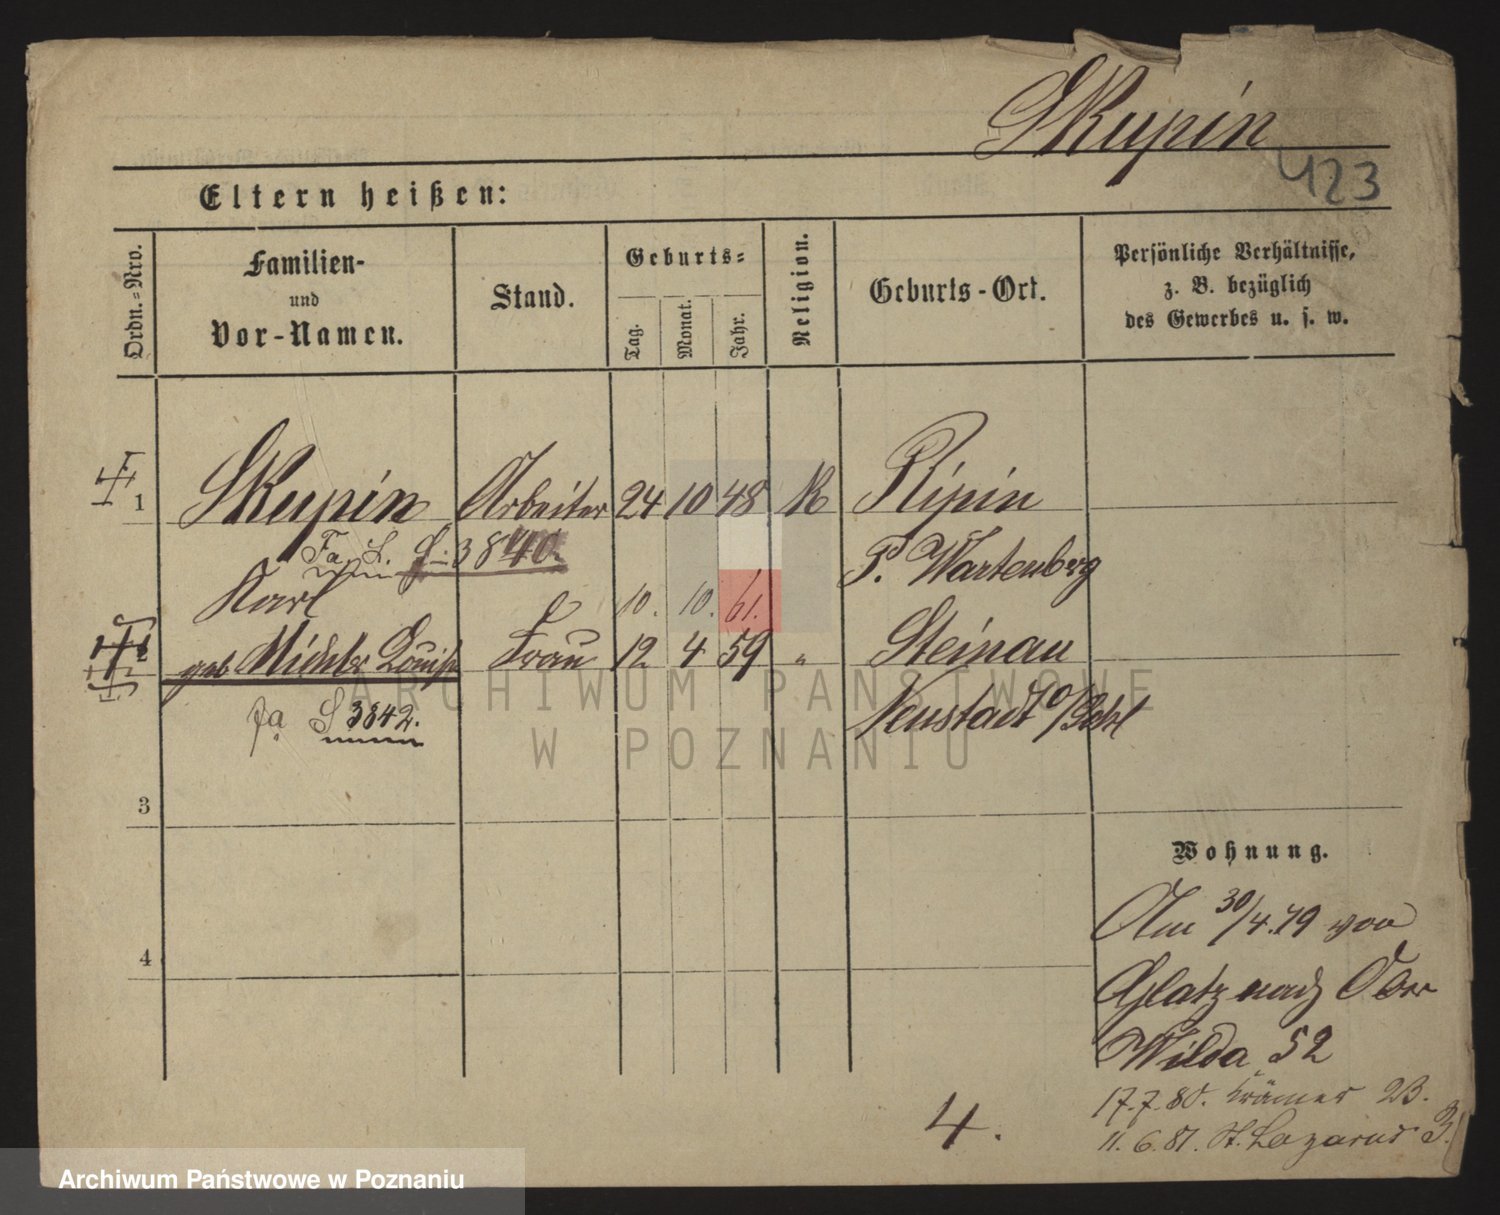 Skupin
423
Eltern heißen:
Ordn.-Nro.
Familien-
und
Vor-Namen.
Stand.
Geburts-
Tag.
Monat.
Jahr.
Religion.
Geburts-Ort.
Persönliche Verhältnisse,
z. B. bezüglich
des Gewerbes u. s. w.
1 Skupin Arbeiter 24 10 48 K Ripin
Fa. S. S. 3840. P. Wartenberg
Karl 10. 10. 61.
geb. Michler Louise Frau 12 4 59 " Steinau
Fa S 3842. Neustadt O/Schl
ARCHIWUM PAŃSTWOWE
W POZNANIU
3
Wohnung.
Am 30/4.79 von
4
Glatz nach Ober
Wilda 52
17.7.80. Krämer 23.
11.6.81. St. Lazarus 3.
4.
Archiwum Państwowe w Poznaniu